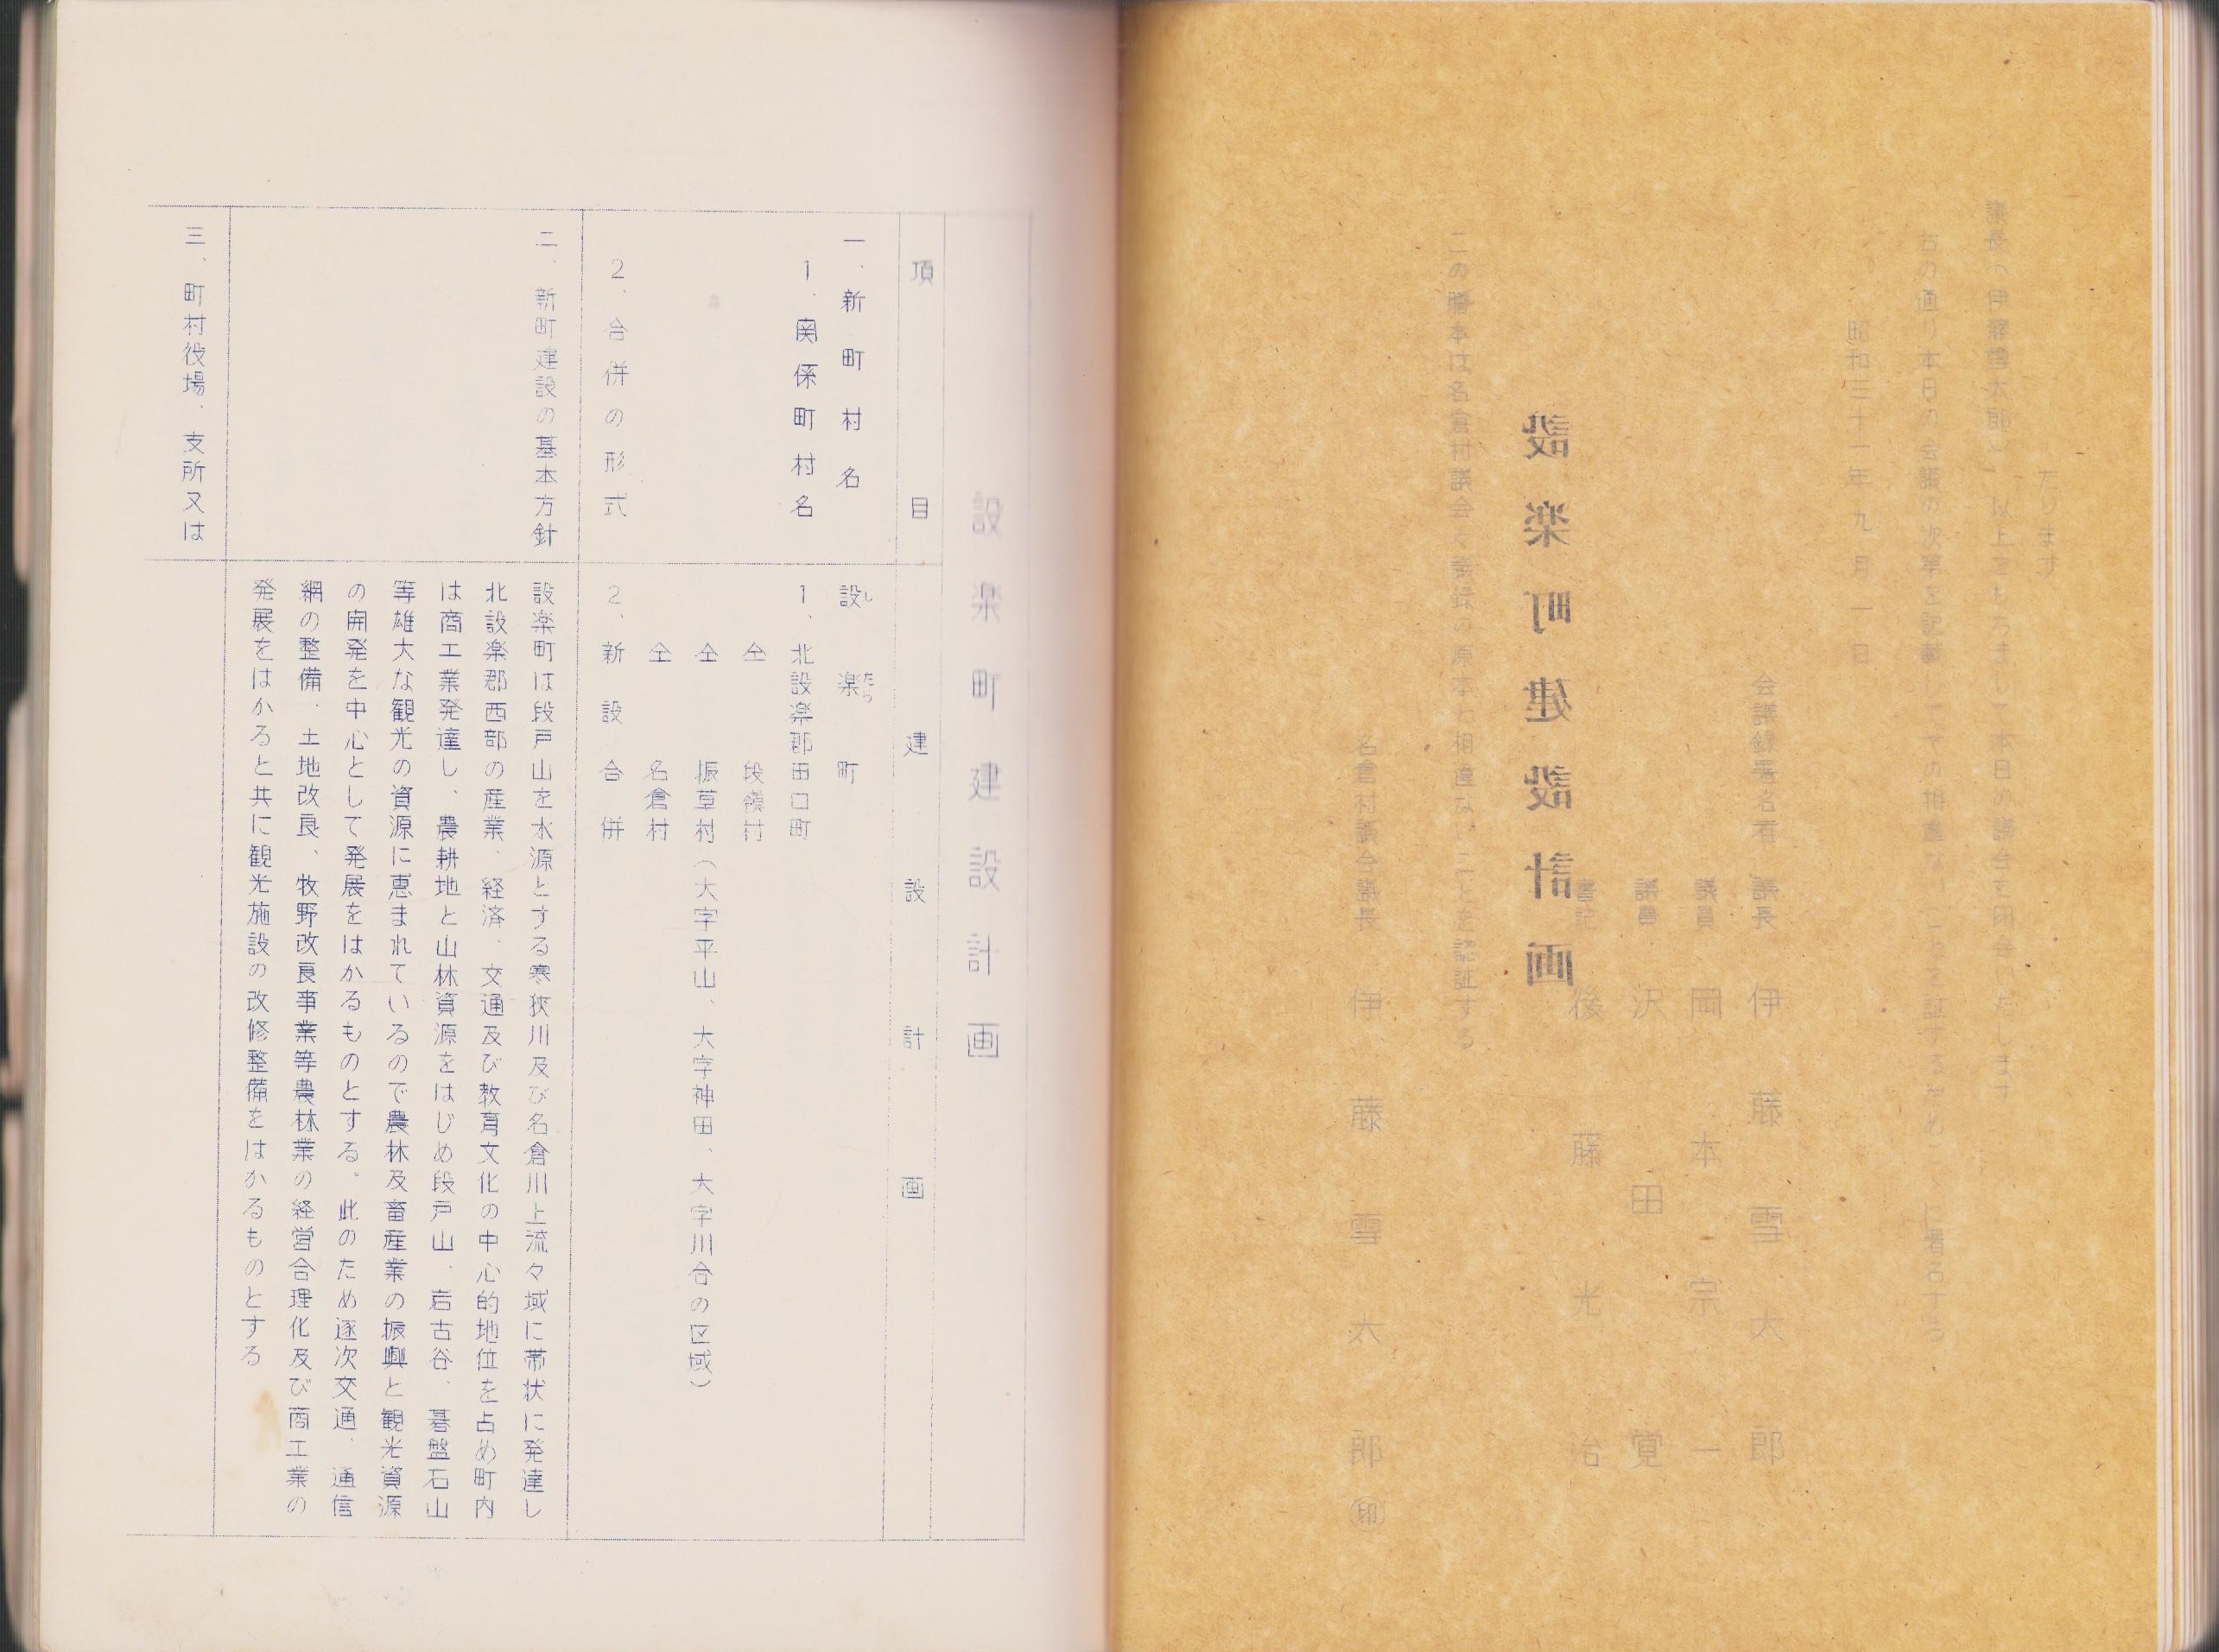 議長(伊藤雪太郎) 以上をもつまして本日の議会を閉会いたします
右の通り本日の会議の次第を記載してその相違ないことを証するため に署名する
昭和三十一年九月一日
会議録署名者 議長 伊藤雪太郎
議員 岡本宗一
沢田覚
書記 後藤光治
設楽町建設計画
この謄本は名倉村議会々議録の原本と相違ないことを認証する
名倉村議会議長 伊藤雪太郎 ㊞
設楽町建設計画
項目 建設計画
一、新町村名 設楽町 したら
1、関係町村名 1、北設楽郡田口町
仝 段嶺村
仝 振草村(大字平山、大字神田、大字川合の区域)
仝 名倉村
2、合併の形式 2、新設合併
二、新町建設の基本方針 設楽町は段戸山を水源とする寒狭川及び名倉川上流々域に帯状に発達し
北設楽郡西部の産業、経済、交通及び教育文化の中心的地位を占め町内
は商工業発達し、農耕地と山林資源をはじめ段戸山、岩古谷、碁盤石山
等雄大な観光の資源に恵まれているので農林及畜産業の振興と観光資源
の開発を中心として発展をはかるものとする。此のため逐次交通、通信
網の整備、土地改良、牧野改良事業等農林業の経営合理化及び商工業の
発展をはかると共に観光施設の改修整備をはかるものとする
三、町村役場、支所又は